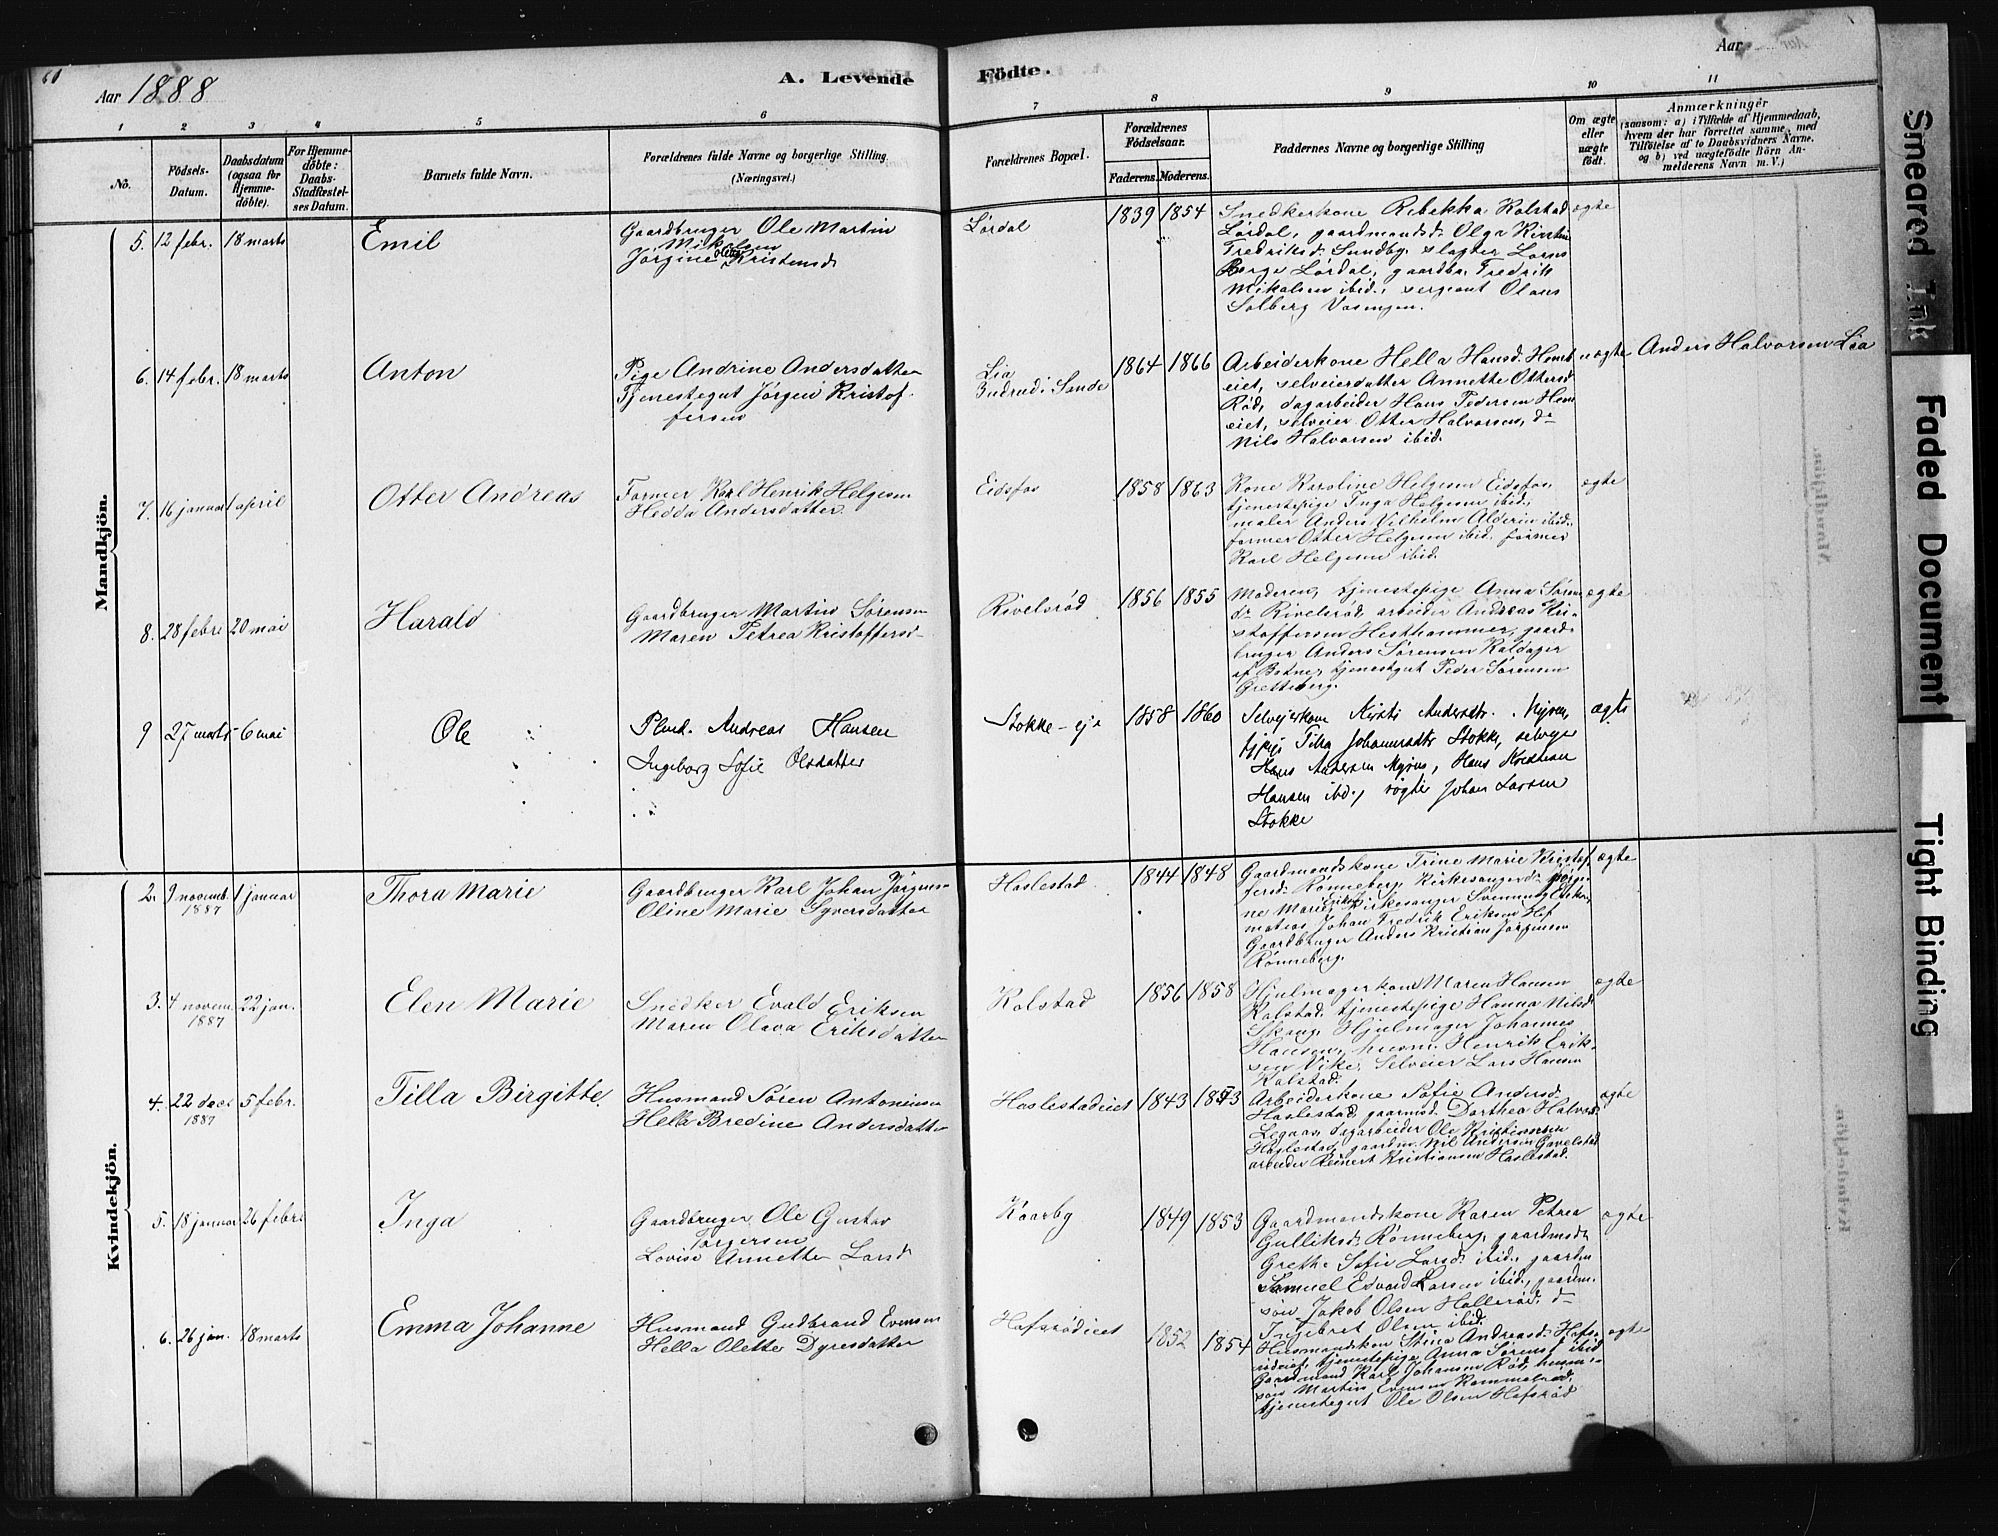 Aar 1888
A. Levende
Födte.
Aar
1 2 3 4 5 6 7 8 9 10 11
No.
Födsels-Datum.
Daabsdatum (ogsaa for Hjemmedöbte).
For Hjemmedöbte: Daabs-Stadfæstelses Datum.
Barnets fulde Navn.
Forældrenes fulde Navne og borgerlige Stilling (Næringsvei.)
Forældrenes Bopæl.
Forældrenes Födselsaar.
Faderens. Moderens.
Faddernes Navne og borgerlige Stilling
Om ægte eller uægte födt.
Anmærkninger
(saasom: a) i Tilfælde af Hjemmedaab,
hvem der har forrettet samme, med
Tilföielse af to Daabsvidners Navne,
og b) ved uægtefödte Börn Anmelderens Navn m. V.)
Mandkjön.
5. 12 febr. 18 marts Emil
Gaardbruger Ole Martin
Mikalsen
Jørgine Kristensd
Lørdal 1839 1854
Snedkerkone Rebekka Kolstad ægte
Lørdal, gaardmandsd. Olga Kirstine
Fredriksd. Sundby, slagter Lorns
Berge Lørdal, gaardbr. Fredrik
Mikalsen ibid., sergeant Olaus
Solberg Vasengen.
6. 14 febr. 18 marts Anton
Pige Andrine Andersdatter
Tjenestegut Jørgen Kristof-
fersen
Lia
i Sande
1864 1866
Arbeiderkone Hella Hansd. uægte
eiet, selveierdatter Annette Ottersd
Rød, dagarbeider Hans Pedersen
eiet, selveier Otter Halvorsen, do
Nils Halvorsen ibid.
Anders Halvorsen Lia
7. 16 januar 1 april Otter Andreas
Former Karl Henrik Helgesen
Hedda Andersdatter.
Eidsfos 1858 1863
Kone Karoline Helgesen Eidsfos, ægte
tjenestepige Inga Helgesen ibid.,
maler Anders Vilhelm Alderin ibid.,
former Otter Helgesen ibid. former
Karl Helgesen ibid.
8. 28 febr 20 mai Harald
Gaardbruger Martin Sørensen
Maren Petrea Kristoffersd
Rivelsrød 1856 1855
Moderen, tjenestepige Anna Søren ægte
do Rivelsrød arbeider Andreas Kri-
stoffersen Hesthammer, gaard-
bruger Anders Sørensen Koldager
af Botne, tjenestgut Peder Sørensen
Gretteberg.
9 27 marts 6 mai Ole
Plmd. Andreas Hansen
Ingeborg Sofie Olsdatter
Stokke-eje 1858 1860
Selvejerkone Kirsti Andersdtr. Myren, ægte
tjpige Petra Johannesdtr Stokke, selvejer
Hans Andersen Myren, Hans Kristian
Hansen ibd., røgter Johan Larsen
Stokke
Kvindekjön.
2. 9 novemb. 1887 1 januar Thora Marie
Gaardbruger Karl Johan Jørgensen
Oline Marie Syversdatter
Haslestad. 1844 1848
Gaardmandskone Trine Marie Kristof ægte
fersd. Rønneberg, Kirkesangerd.
ne Marie Eriksen, Kirkesanger Svennung Eriksen,
Johan Fredrik Eriksen Hof
Gaardbruger Anders Kristian Jørgensen
Rønneberg.
3. 4 novem 1887 22 jan. Elen Marie
Snedker Evald Eriksen
Maren Olava Eriksdatter
Kolstad 1856 1858
Hjulmagerkone Maren Hansen ægte
Kolstad tjenestepige Hanna Nilsd
Skaug, Hjulmager Johannes
Hansen, husm. Henrik Erik-
sen Vike, Selveier Lars Hansen
Kolstad.
4. 22 dec 1887 5 febr. Tilla Birgitte.
Husmand Søren Antonsen
Hella Bredine Andersdatter
Haslestadeiet 1843 1853
Arbeiderkone Sofie Andersd ægte
Haslestad, gaarmsd. Dorthea Halvorsd
dagarbeider Ole Kristiansen
Haslestad, gaardm. Nil Andersen Gavelstad
arbeider Reinert Kristiansen Haslestad.
5. 18 januar 26 febr Inga
Gaardbruger Ole Gustav
Torgersen
Lovise Annette Larsd
Kaarby 1849 1853
Gaardmandskone Karen Petrea ægte
Gulliksd. Rønneberg, gaardmsd.
Grethe Sofie Larsd. ibid., gaardm
Samuel Edvard Larsen ibid., gaardm.
søn Jakob Olsen Hallerød, do
Ingebret Olsen ibid.
6. 26 jan. 18 marts Emma Johanne
Husmand Gudbrand Evensen
Hella Olette Dyresdatter
Hafsrødieet 1852 1854
Husmandskon Stina Andreasd. Hafs- ægte
rødeiet, tjenestepige Anna Sørensd ibid
Gaardmand Karl Johansen Rød, husm-
søn Martin Evensen
tjenestegut Ole Olsen Hafsrød
Smeared Ink
Faded Document
Tight Binding